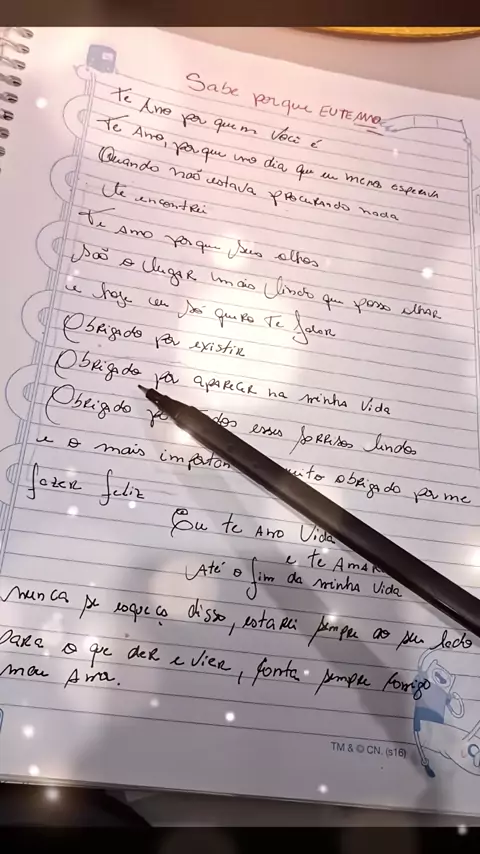 Sabe porque EU TE AMO
Te Amo por quem você é
Te Amo, porque no dia que eu menos esperava
Quando não estava procurando nada
te encontrei
Te amo porque seus olhos
São o lugar mais lindo que posso olhar
e hoje eu só quero te falar
Obrigado por existir
Obrigado por aparecer na minha vida
Obrigado por esses sorrisos lindos
e o mais muito obrigado por me
fazer feliz
Eu te amo Vida
e te
Até o fim da minha vida
nunca se esqueça disso, estarei sempre ao seu lado
para o que der e vier, conta sempre comigo
meu Amor.
TM & © CN. (s16)